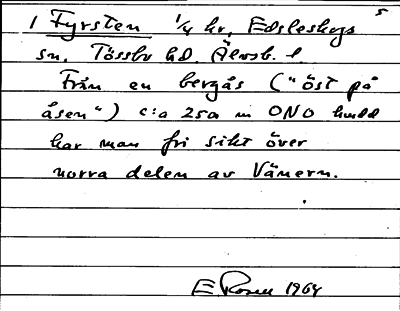 1 Fyrsten 1/4 kr, Edsleskogs s
sn, Tössbo hd. Älvsb. l
Från en bergås ("öst på
åsen") c:a 250 m ONO
har man fri sikt över
norra delen av Vänern.
E Rosell 1964